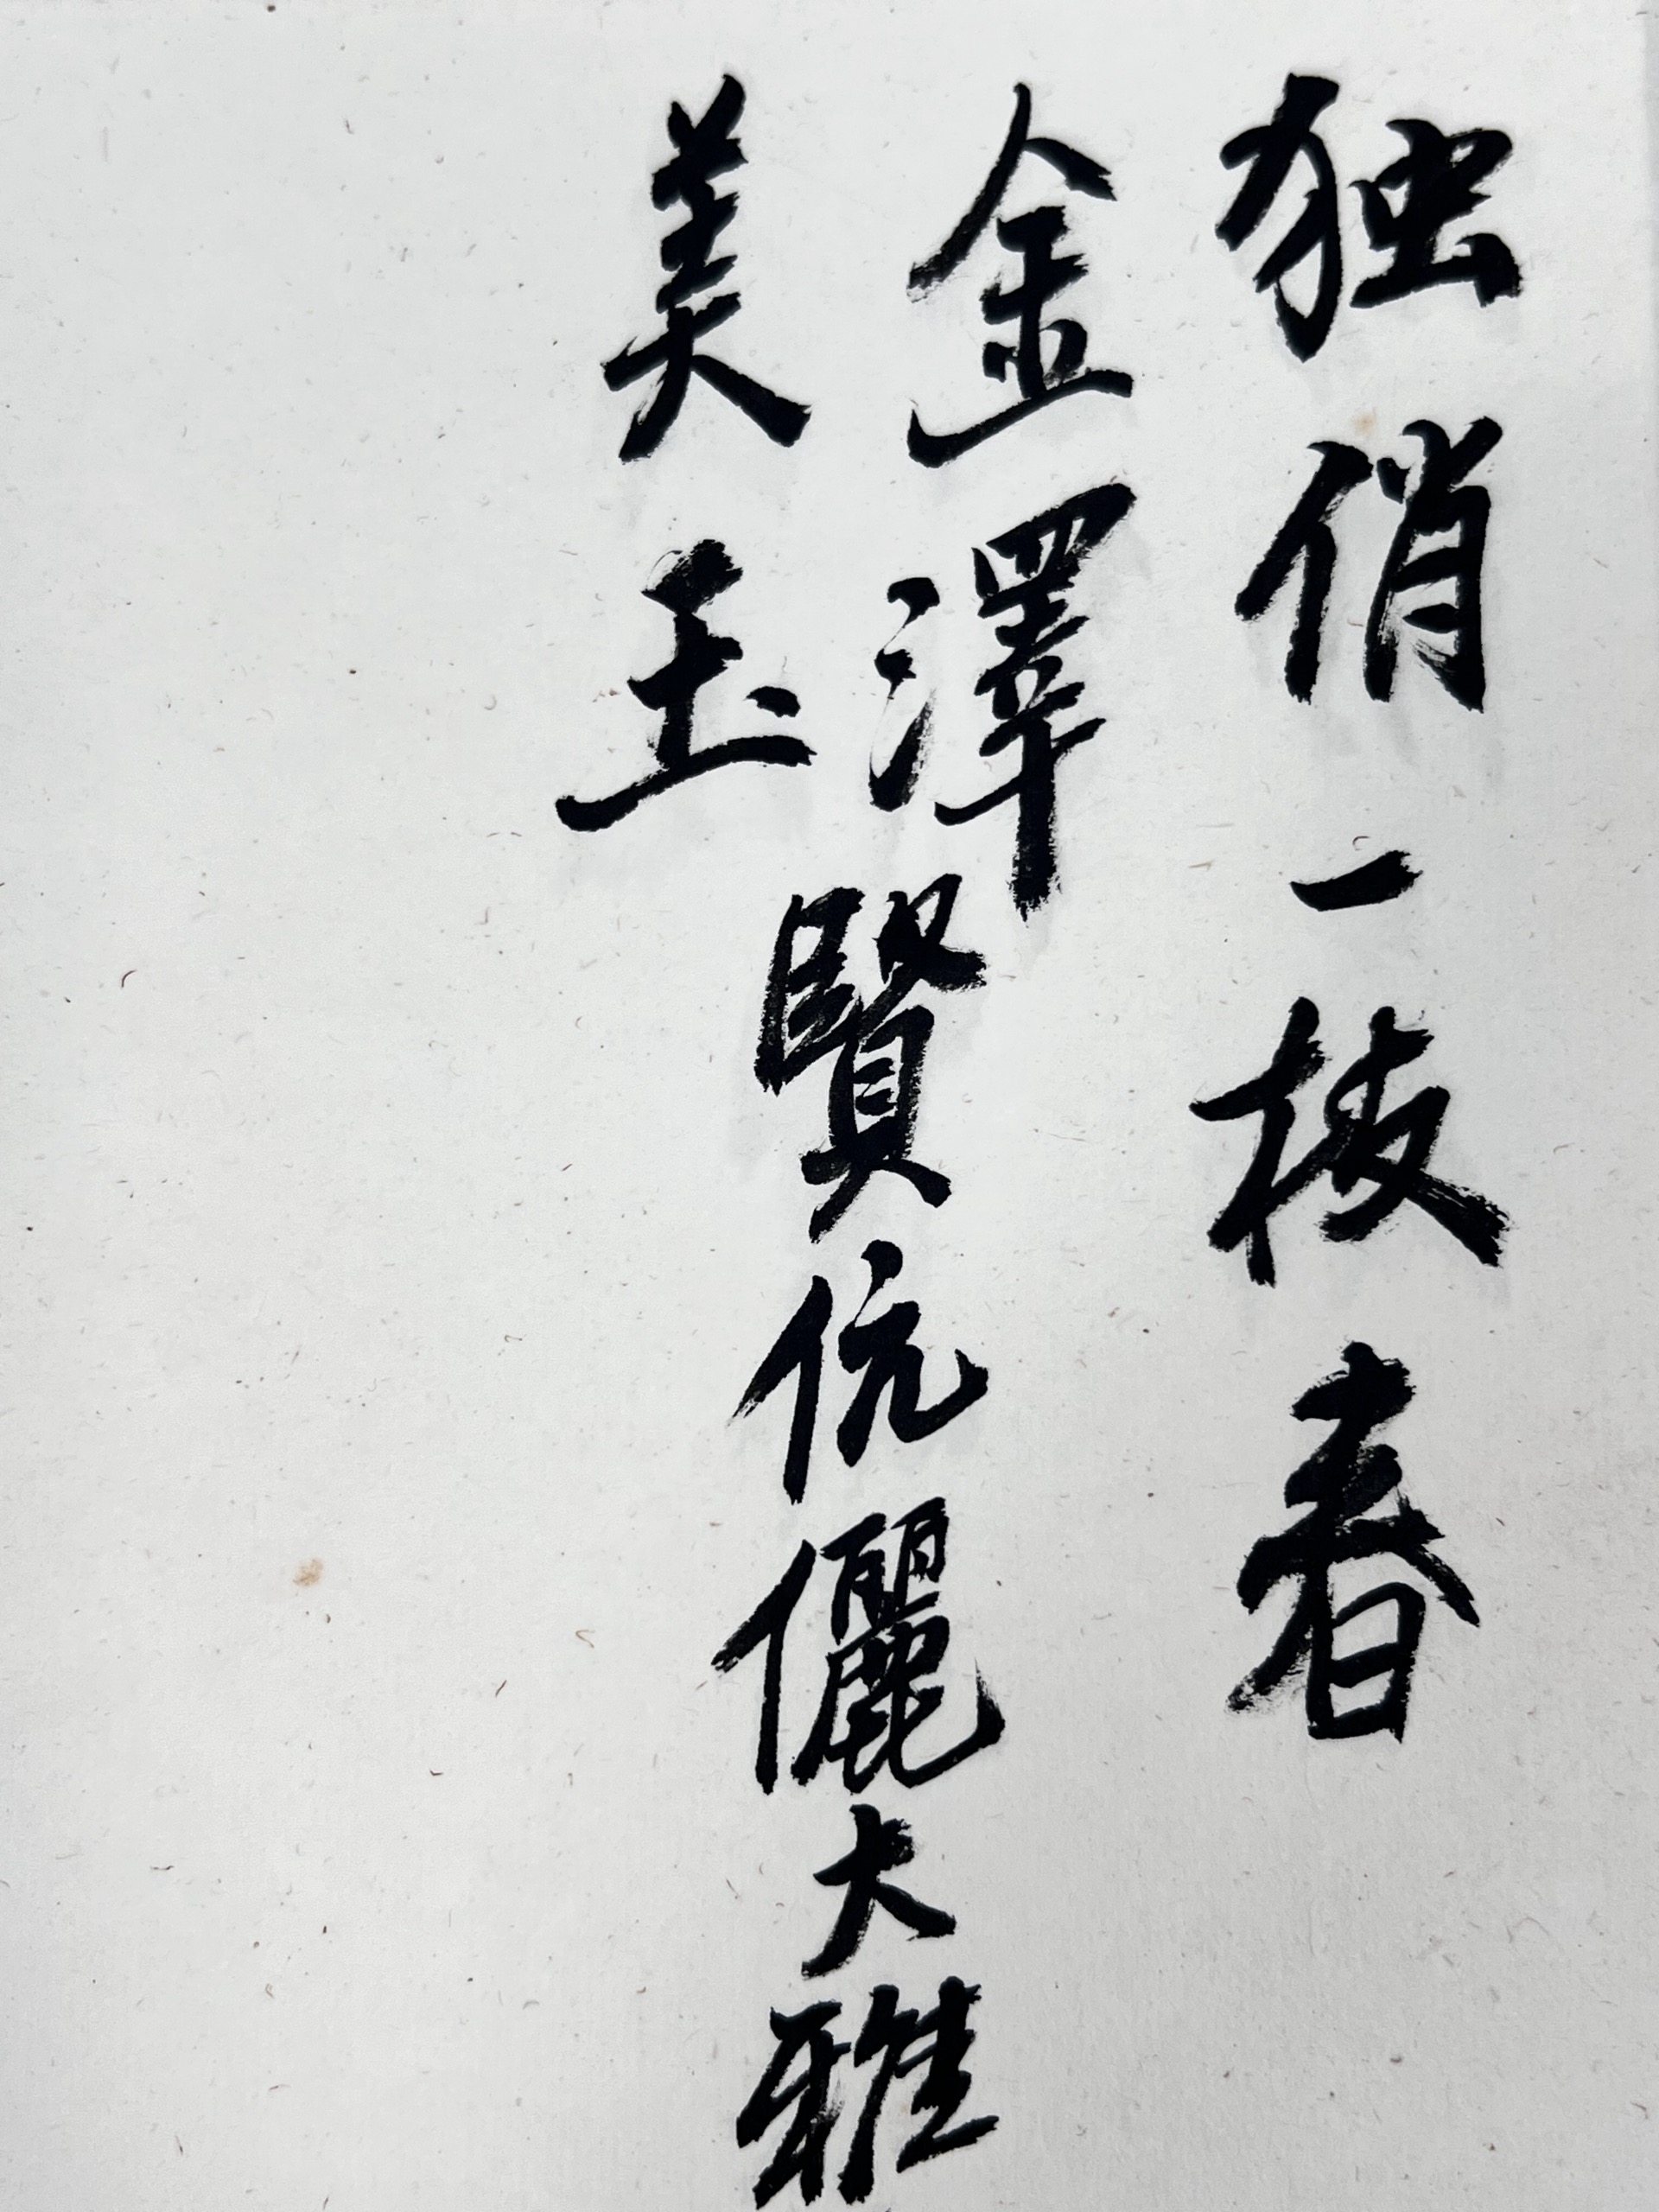 独俏一枝春
金澤
美玉
賢伉儷大雅